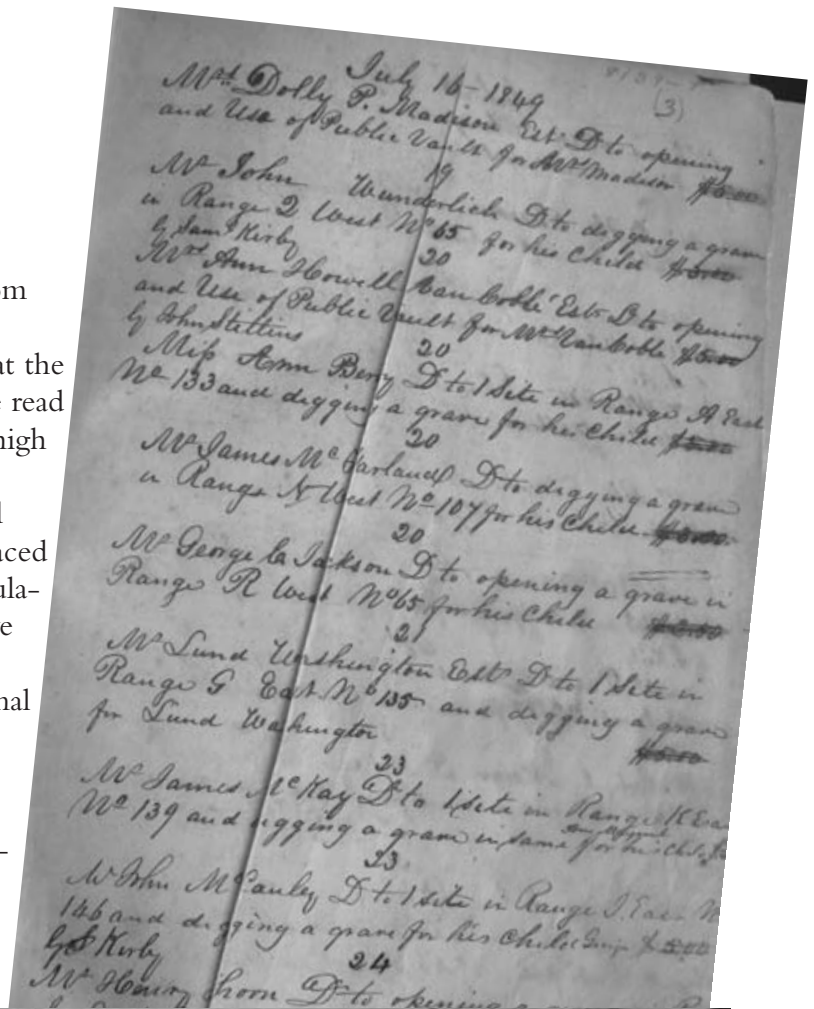 om
at the
read
high
aced
ula-
e
nal
July 16 - 1849
(3)
Mrs Dolly P. Madison Est Dr to opening
and Use of Public Vault for Mrs Madison
19
Mr John Wunderlich Dr to digging a grave
in Range 2 West No 65 for his Child
by Saml Kirby
20
Mrs Ann Howell Van Coble Est Dr to opening
and Use of Public Vault for Mrs Van Coble
by John Stettins
20
Miss Ann Berry Dr to 1 Site in Range A East
No 133 and digging a grave for his Child
20
Mr James Mc Garland Dr to digging a grave
in Range N West No 107 for his Child
20
Mr George Jackson Dr to opening a grave in
Range R West No 65 for his Child
21
Mr Lund Washington Est Dr to 1 Site in
Range G East No 135 and digging a grave
for Lund Washington
23
Mr James McKay Dr to 1 Site in Range K Ea
No 139 and digging a grave in same for his Child
23
Mr John McCauley Dr to 1 site in Range I East N
146 and digging a grave for his Child
by S Kirby
24
Mr Henry Dr to opening a